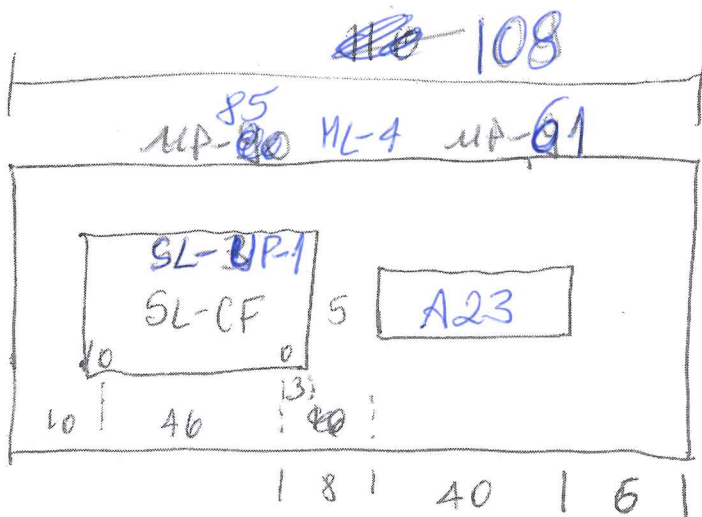 108
85
MP- ML-4 MP-61
SL-UP-1
SL-CF 5 A23
10 0
3
10 46
8 40 6